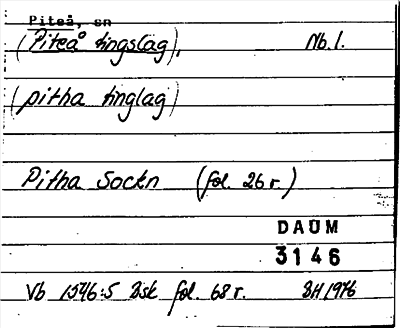 Piteå, sn
(Piteå tingslag), Nb.l.
(pitha tinglag)
Pitha Sockn (fol. 26 r.)
DAUM
3146
Vb 1546:5 Bsk fol. 68 r. BH 1976